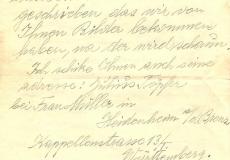 geschrieben, das wir von
Ihnen Bilder bekommen
haben, na der wird schaun.
Ich schike Ihnen auch seine
adresse: Julius Töpfer
bei Frau Müller in
Heidenheim a/d. Brenz
Kappellenstrasse 13/I
Württemberg.